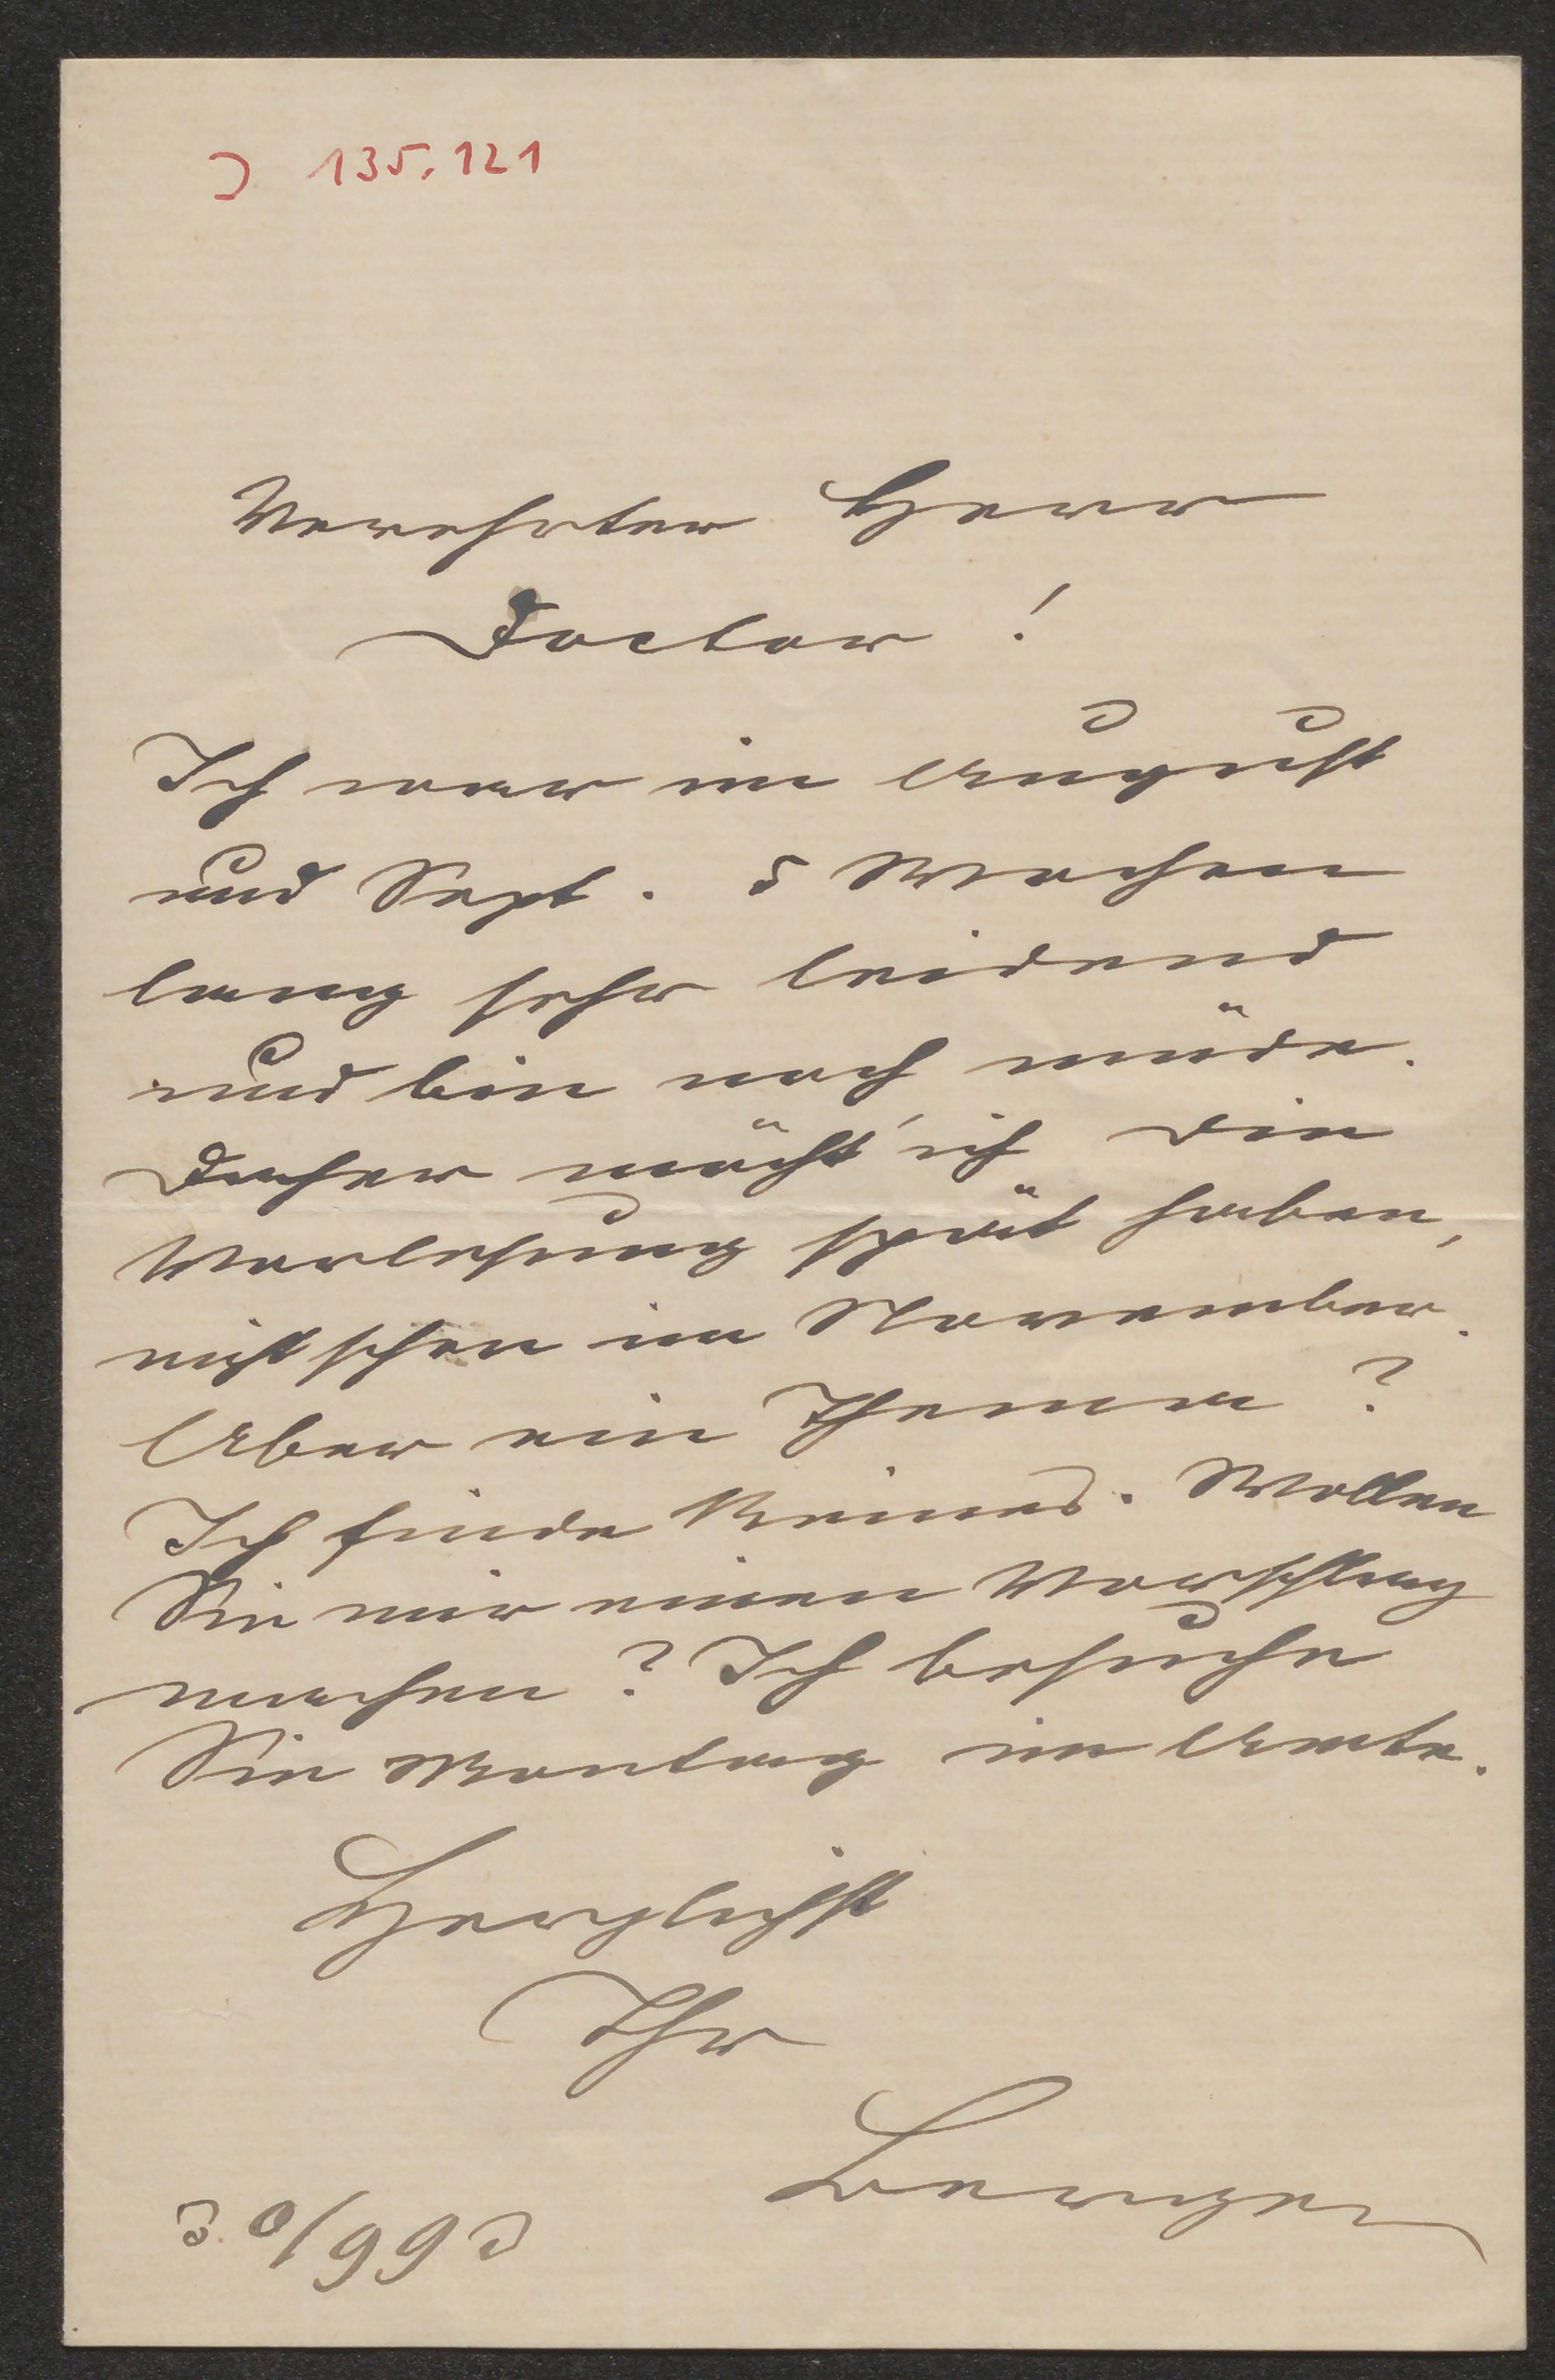 J 135.121
Verehrter Herr
Doctor!
Ich war im August
und Sept. 5 Wochen
lang sehr leidend
und bin noch müde.
Daher möcht' ich die
Vorlesung spät haben,
nicht schon im November.
Aber ein Thema?
Ich finde Keines. Wollen
Sie mir einen Vorschlag
machen? Ich besuche
Sie Montag im Amte.
Herzlichst
Ihr
Berger